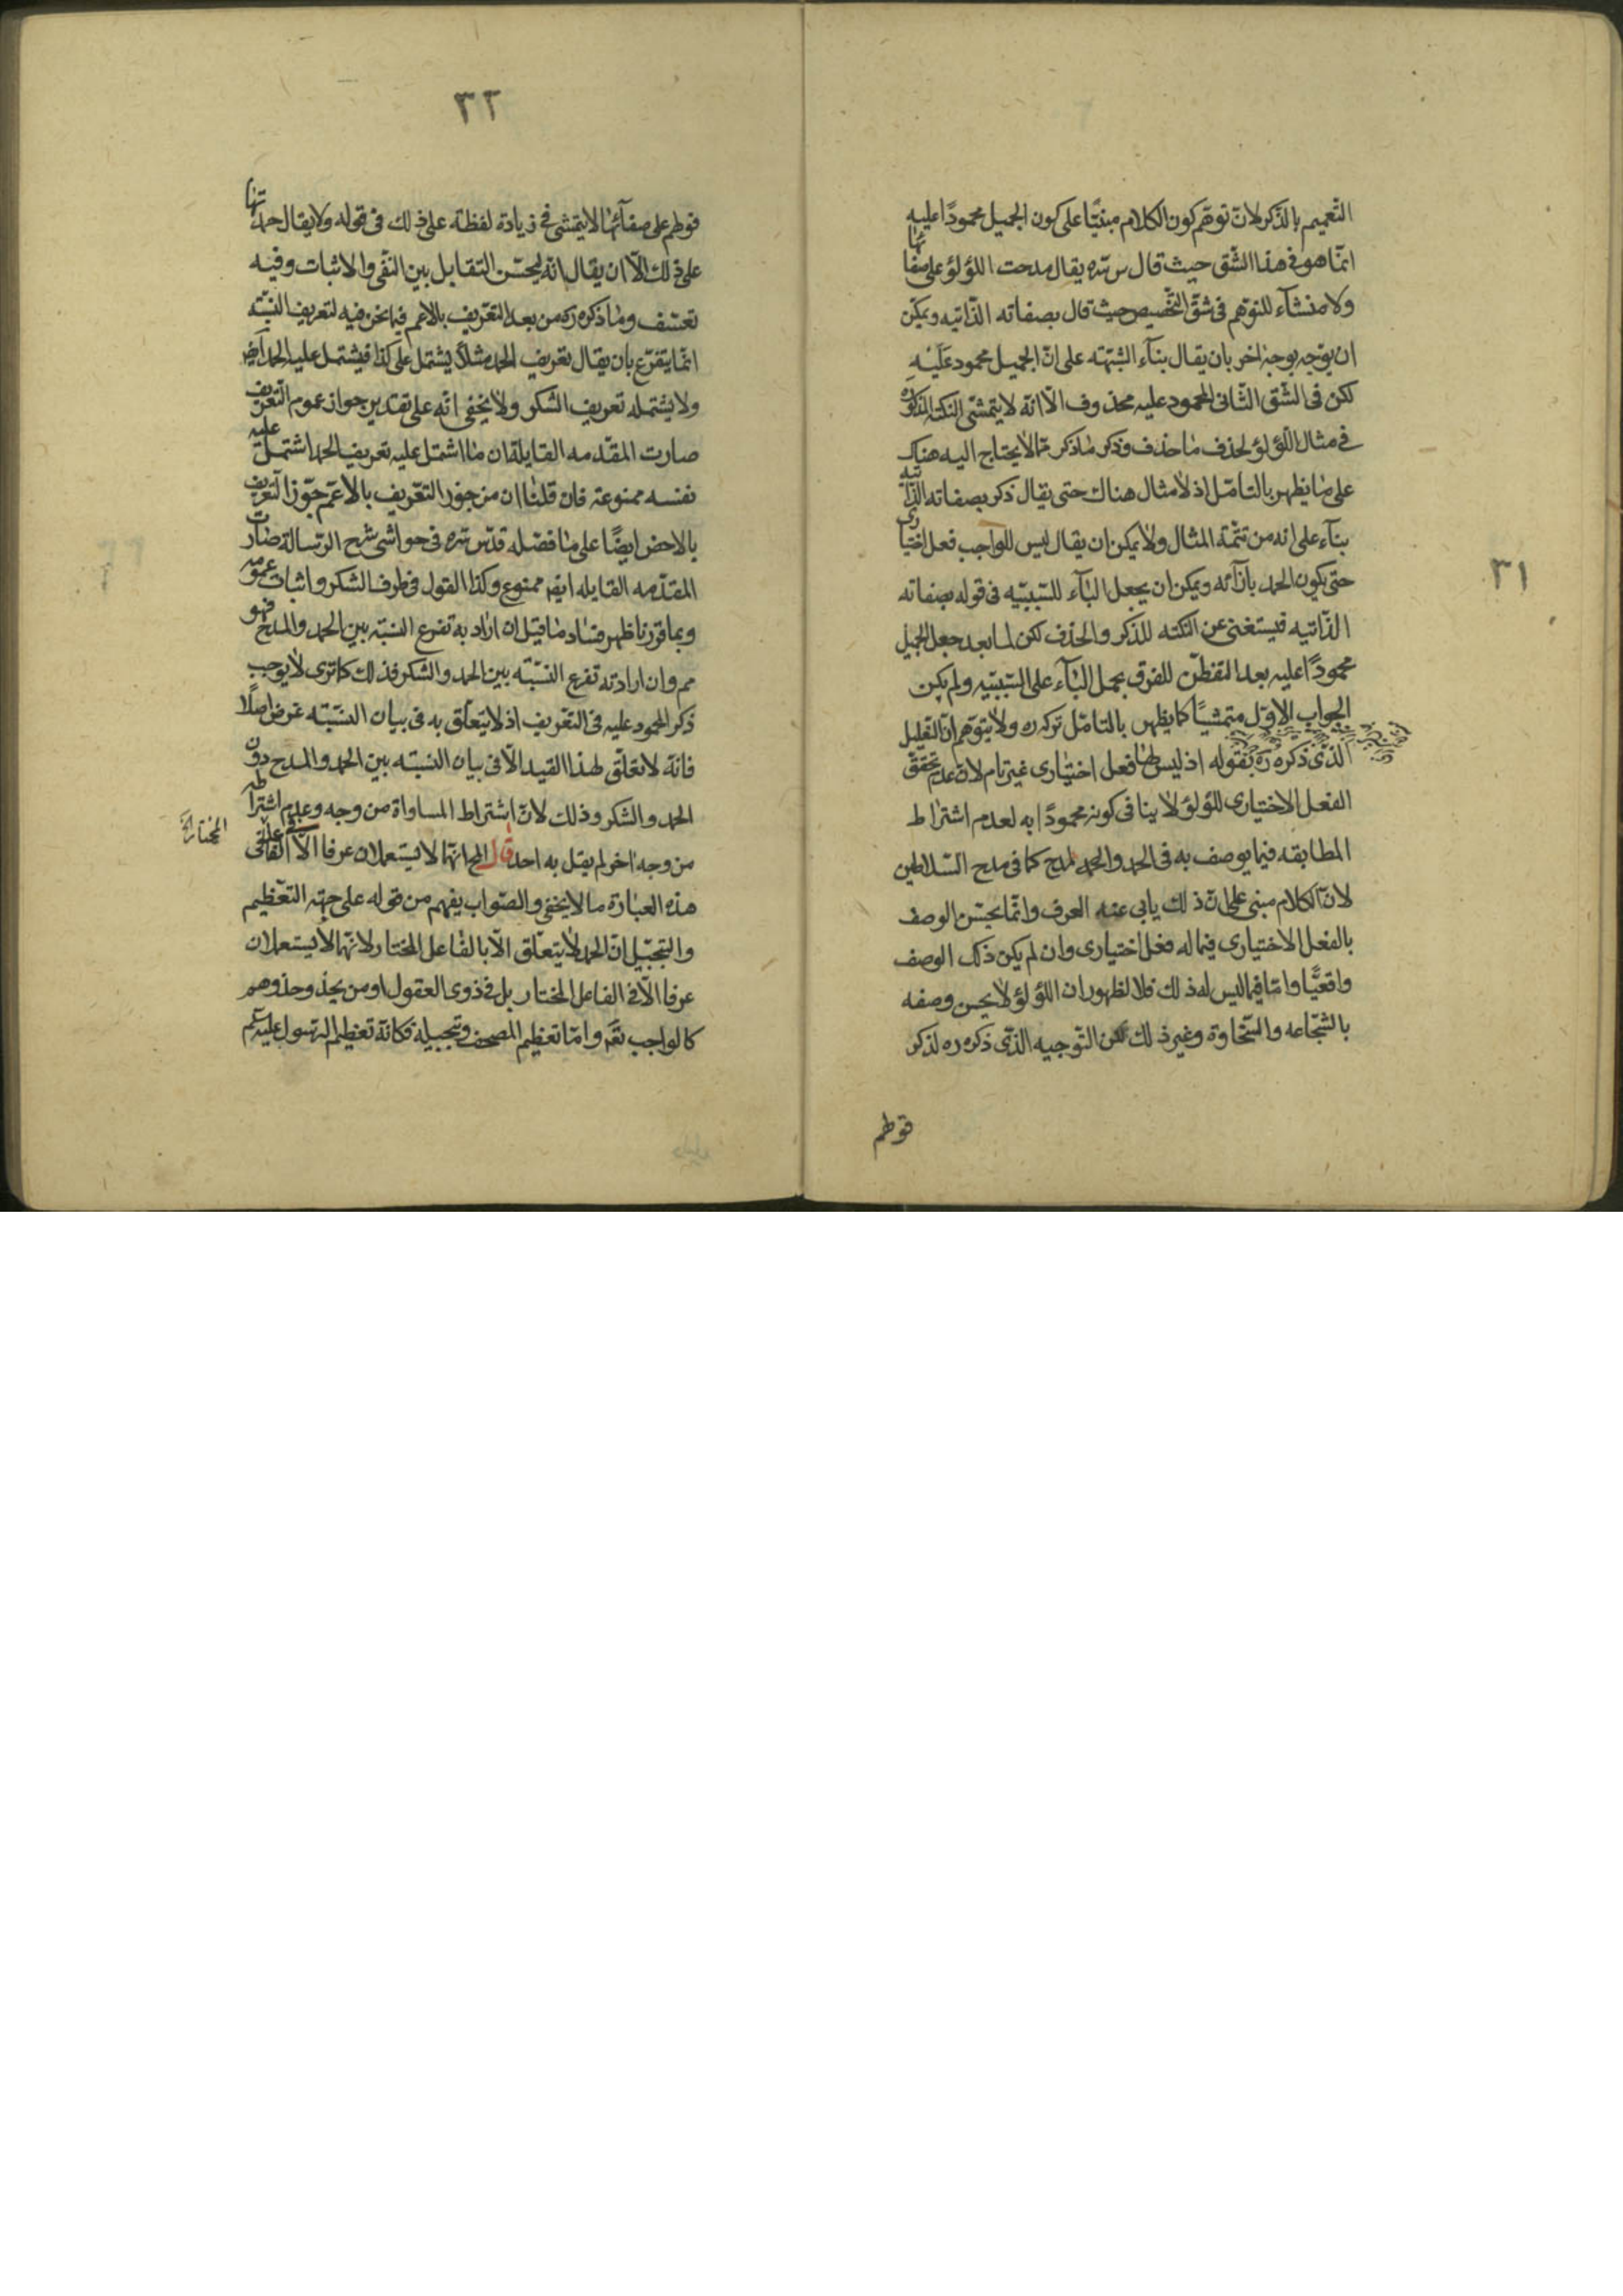 ٣١
التّعميم بالذّكر لانّ توهّم كون الكلام مبنيّا على كون الجميل محمودًا عليه
انّما هو فى هذا الشّق حيث قال س سّره يقال مدحت اللؤلؤ على صفائها
ولا منشآء للتوهّم فى شقّ التّخصيص حيث قال بصفاته الذّاتيه ويمكن
ان يوّجه بوجه اخر بان يقال بنآء الشّبهته على انّ الجميل محمود عليه
لكن فى الشّق الثّانى المحمود عليه محذوف الّا انّه لا يتمشّى النكته المذكوره
فى مثال اللّؤلؤ لحذف ما حذف وذكر ما ذكر ممّا لا يحتاج اليه هناك
على ما يظهر بالتامّل اذ لا مثال هناك حتى يقال ذكر بصفاته الذّاتيه
بنآء على انه من تتمّة المثال ولا يمكن ان يقال ليس للواجب فعل اختيارى
حتى يكون الحمد بازآئه ويمكن ان يجعل البآء للسّببيّه فى قوله بصفاته
الذّاتيه فيستغنى عن النكته للذّكر والحذف لكن لما بعد جعل الجميل
محمودًا عليه بعد التفطّن للفرق بحمل البآء على السّببيّه ولم يكن
الجواب الاوّل متمشّيًا كما يظهر بالتامّل تركه ره ولا يتوّهم انّ التعليل
الذّى ذكره ره بقوله اذ ليس لها فعل اختيارى غير تام لانّ عدم تحقّق
الفعل الاختيارى للؤلؤ لا ينافى كونه محمودًا به لعدم اشتراط
المطابقه فيما يوصف به فى الحمد والمدح كما فى مدح السّلاطين
لانّ الكلام مبنى على انّ ذلك يابى عنه العرف وانّما يحسّن الوصف
بالفعل الاختيارى فيما له فعل اختيارى وان لم يكن ذلك الوصف
واقعيًّا وامّا فيما ليس له ذلك فلا لظهور ان اللؤلؤ لا يحسن وصفه
بالشجّاعه والسّخاوة وغير ذلك لكن التّوجيه الذّى ذكره ره لذكر
قولهم
٣٢
قولهم على صفآئها لا يتمشى فى زيادة لفظة على ذلك فى قوله ولا يقال حمدتها
على ذلك الّا ان يقال انّه ليحسّن التقابل بين النّفى والاثبات وفيه
تعسّف وما ذكره ره من بعد التعّريف بالاعم فيما نحن فيه لتعريف النّسبّه
انّما يتفرّع بان يقال تعريف الحمد مثلاً يشتمل على كذا فيشتمل عليه الحمد ايض
ولا يشتمله تعريف الشكر ولا يخفى انّه على تقدير جواز عموم التعريف
صارت المقّدمه القايلة ان ما اشتمل عليه تعريف الحمد اشتمل عليه
نفسه ممنوعة فان قلنا ان من جوّز التعّريف بالاعّم جوّز التعريف
بالاخص ايضًا على ما فصّله قدّس سّره فى حواشى شرح الرّسالة صارت
المقدّمه القايله ايضه ممنوع وكذا القول فى طرف الشكر واثبات عمومه
وبما قررنا ظهر فساد ما قيل ان اراد به تفرع النسبّه بين الحمد والمدح فهو
مم وان اراد به تفرع النسّبّه بين الحمد والشكر فذلك كما ترى لا يوجب
ذكر المحمود عليه فى التعّريف اذ لا يتعلّق به فى بيان النسّبته غرض اصلًا
فانّه لا تعلّق لهذا القيد الّا فى بيان النسبّه بين الحمد والمدح دون
الحمد والشكر وذلك لانّ اشتراط المساواة من وجه وعدم اشتراطه
من وجه اخر لم يقل به احد قال المح انّهما لا يستعملان عرفا الّا فى الفاعل
المختار
هذه العبارة ما لا يخفى والصّواب يفهم من قوله على جهة التعّظيم
والتبجّيل انّ الحمد لا يتعلّق الّا بالفاعل المختار لانّهما لا يستعملان
عرفا الّا فى الفاعل المختار بل فى ذوى العقول او من يحذو حذوهم
كالواجب تعّم وامّا تعظيم المصحف وتبجيله فكانّه تعظيم الرّسول عليه